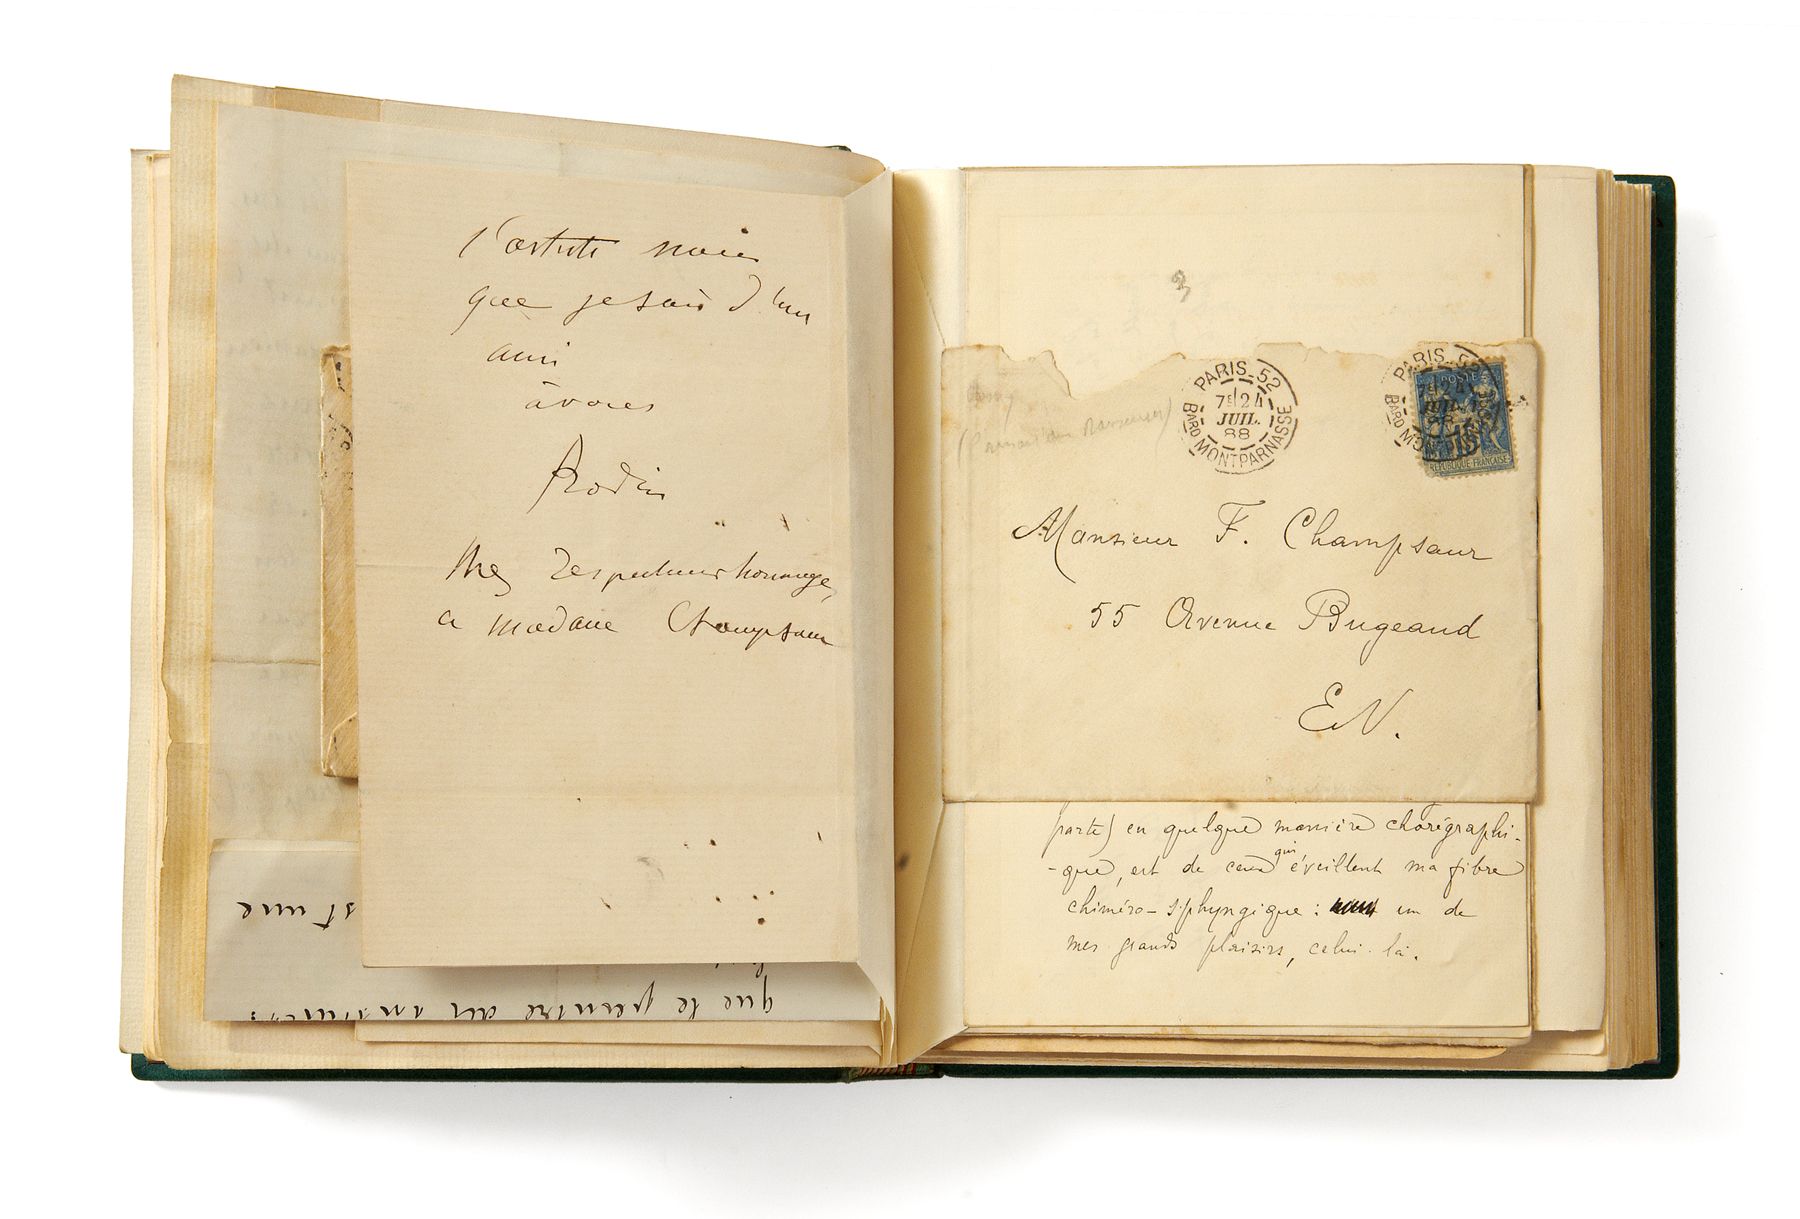 l'artiste mais
que je sais d'un
ami
à vous
Rodin
Mes respectueux hommages,
a madame Champsaur
st une
que le peintre des
3
PARIS_52
7E 24
JUIL.
88
BARD MONTPARNASSE
PARIS_52
7E 24
JUIL.
88
BARD MONTPARNASSE
POSTE
REPUBLIQUE FRANÇAISE
Monsieur F. Champsaur
55 Avenue Bugeaud
E.V.
parte) en quelque manière chorégraphi-
-que, est de ceux qui éveillent ma fibre
chiméro-sphyngique : un de
mes grands plaisirs, celui-là.